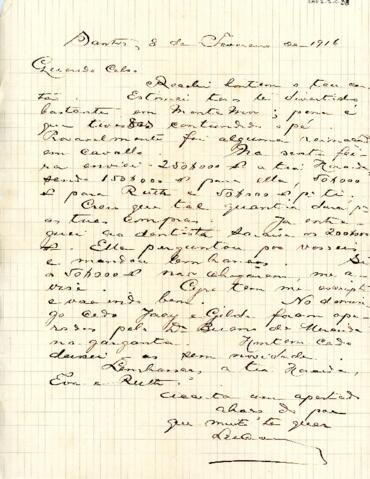 Santos, 8 de Fevereiro de 1916
Querido Celso.
Recebi hontem o teu car
tão. Estimei teres te divertido
bastante em Monte Mor; pena é
que tivesses contundido o pé.
Provavelmente foi alguma reinação
em cavallo. Na sexta fei
ra enviei 250$000 á tua
sendo 150$000 p. para ella, 50$000
p para Ruth e 50$000 p. ti.
Creio que tal quantia dará p.
as tuas compras. Já entre
guei ao dentista os 200$000
. Elle perguntou por vosseis
e mandou lembranças. Si
os 50$000 não chegarem, me a
vise. tem me escripto
e vae indo bem. No domin
go cedo Jacy e Gilda foram ope
rados pelo Dr. Bueno de Miranda
na garganta. Hontem cedo
deixei os sem novidade.
Lembranças a tua
Eva e Ruth.
Aceita um apertado
abraço do pae
que muito te quer